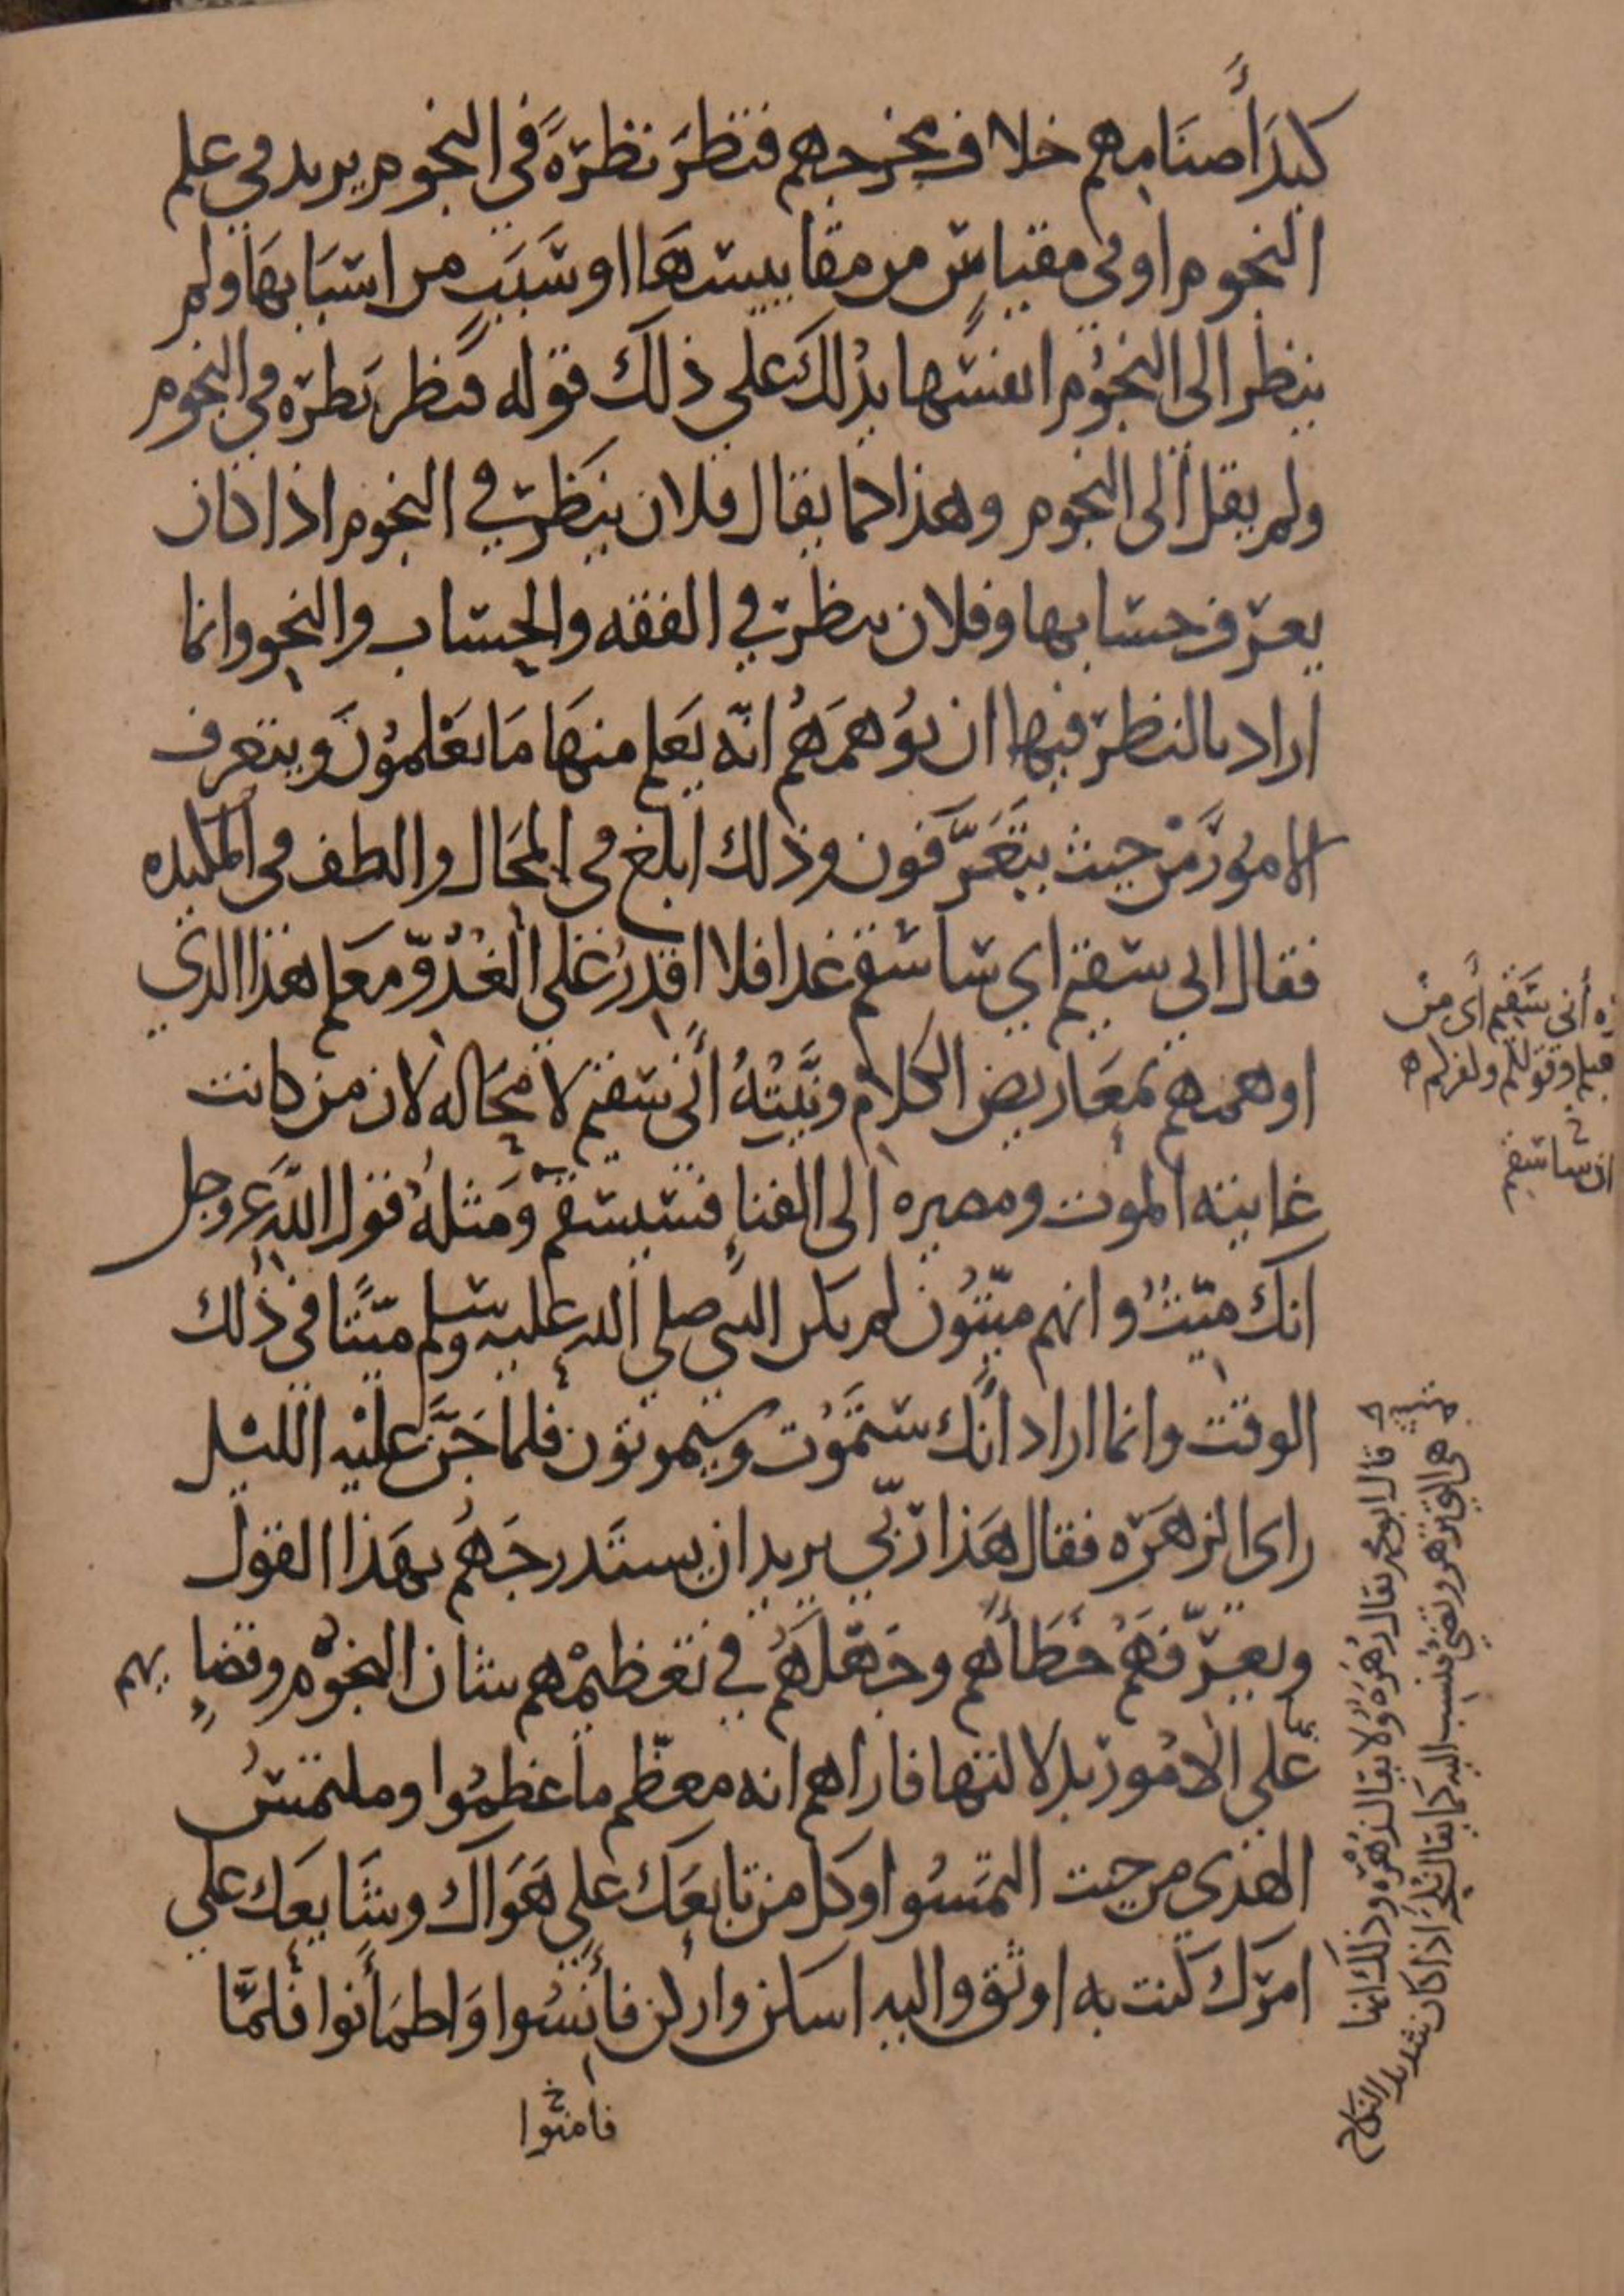 كيدَ أصنَامِهم خلاف مخرجهم فنظرَ نظرَةً في النجوم يريد في علم
النجوم او في مقياسٍ من مقاييسهَا او سَبَبٍ من اسبَابهَا ولم
ينظر الى النجُوم انفسها يدُلك على ذلك قوله فنظر نَظرَه في النجوم
ولم يقل الى النجوم وهذا كما يقال فلان ينظر في النجوم اذا كان
يعرف حسابها وفلان ينظر في الفقه والحساب والنحو وانما
اراد بالنظر فيها ان يُوهمَهُم انّه يَعلم منهَا مَا يعْلمُونَ ويتعرف
الامُورَ مِنْ حيث يَتَعَرَّفون وذلك ابلغ في المحَال والطف في المكيده
فقال اني سقيم اي ساسقم غدا فلا اقدِرُ على الغُدُوّ معَكم هذا الذي
اوهمهم بمعَاريض الكلام ونيَّتُهُ أنّي سقيم لا محَاله لان من كانت
غايته الموت ومصيره الى الفناءِ فسيسقم ومَثلهُ قول الله عز وجل
انك ميّتٌ وانهم ميّتُون لم يكن النبي صلى الله عليه وسلم ميّتًا في ذلك
الوقت وانما اراد أنّك ستمُوت وسيموتون فلما جَنَّ عليْه الليْل
راى الزهَرَه فقال هَذا ربّي يريد ان يستَدرجَهُم بهَذا القول
ويعرّفَهُمْ خطَأَهُم وجهْلَهُم في تعْظيمْهم شان النجوْم وقضاءٍ بهم
على الامُور بدلالتها فاراهم انه معظّم ما عظمُوا وملتمسٌ
الهدى من حيث التمَسُوا وكل من تابعَك على هَوَاك وشَايعَك على
امرك كنت به اوثق واليه اسكن واركن فأنِسُوا وَاطمَأنوا فَلمَّا
فامنوا
أني سَقيم أى من
ان ساسقم
قال ابو محمد يقال زُهَرَهُ ولا يقال زُهْرَه وذلك انها
هي التي تزهر وتضي فنسب اليه كما يقال نُكَحَة اذا كان شديد النكاح